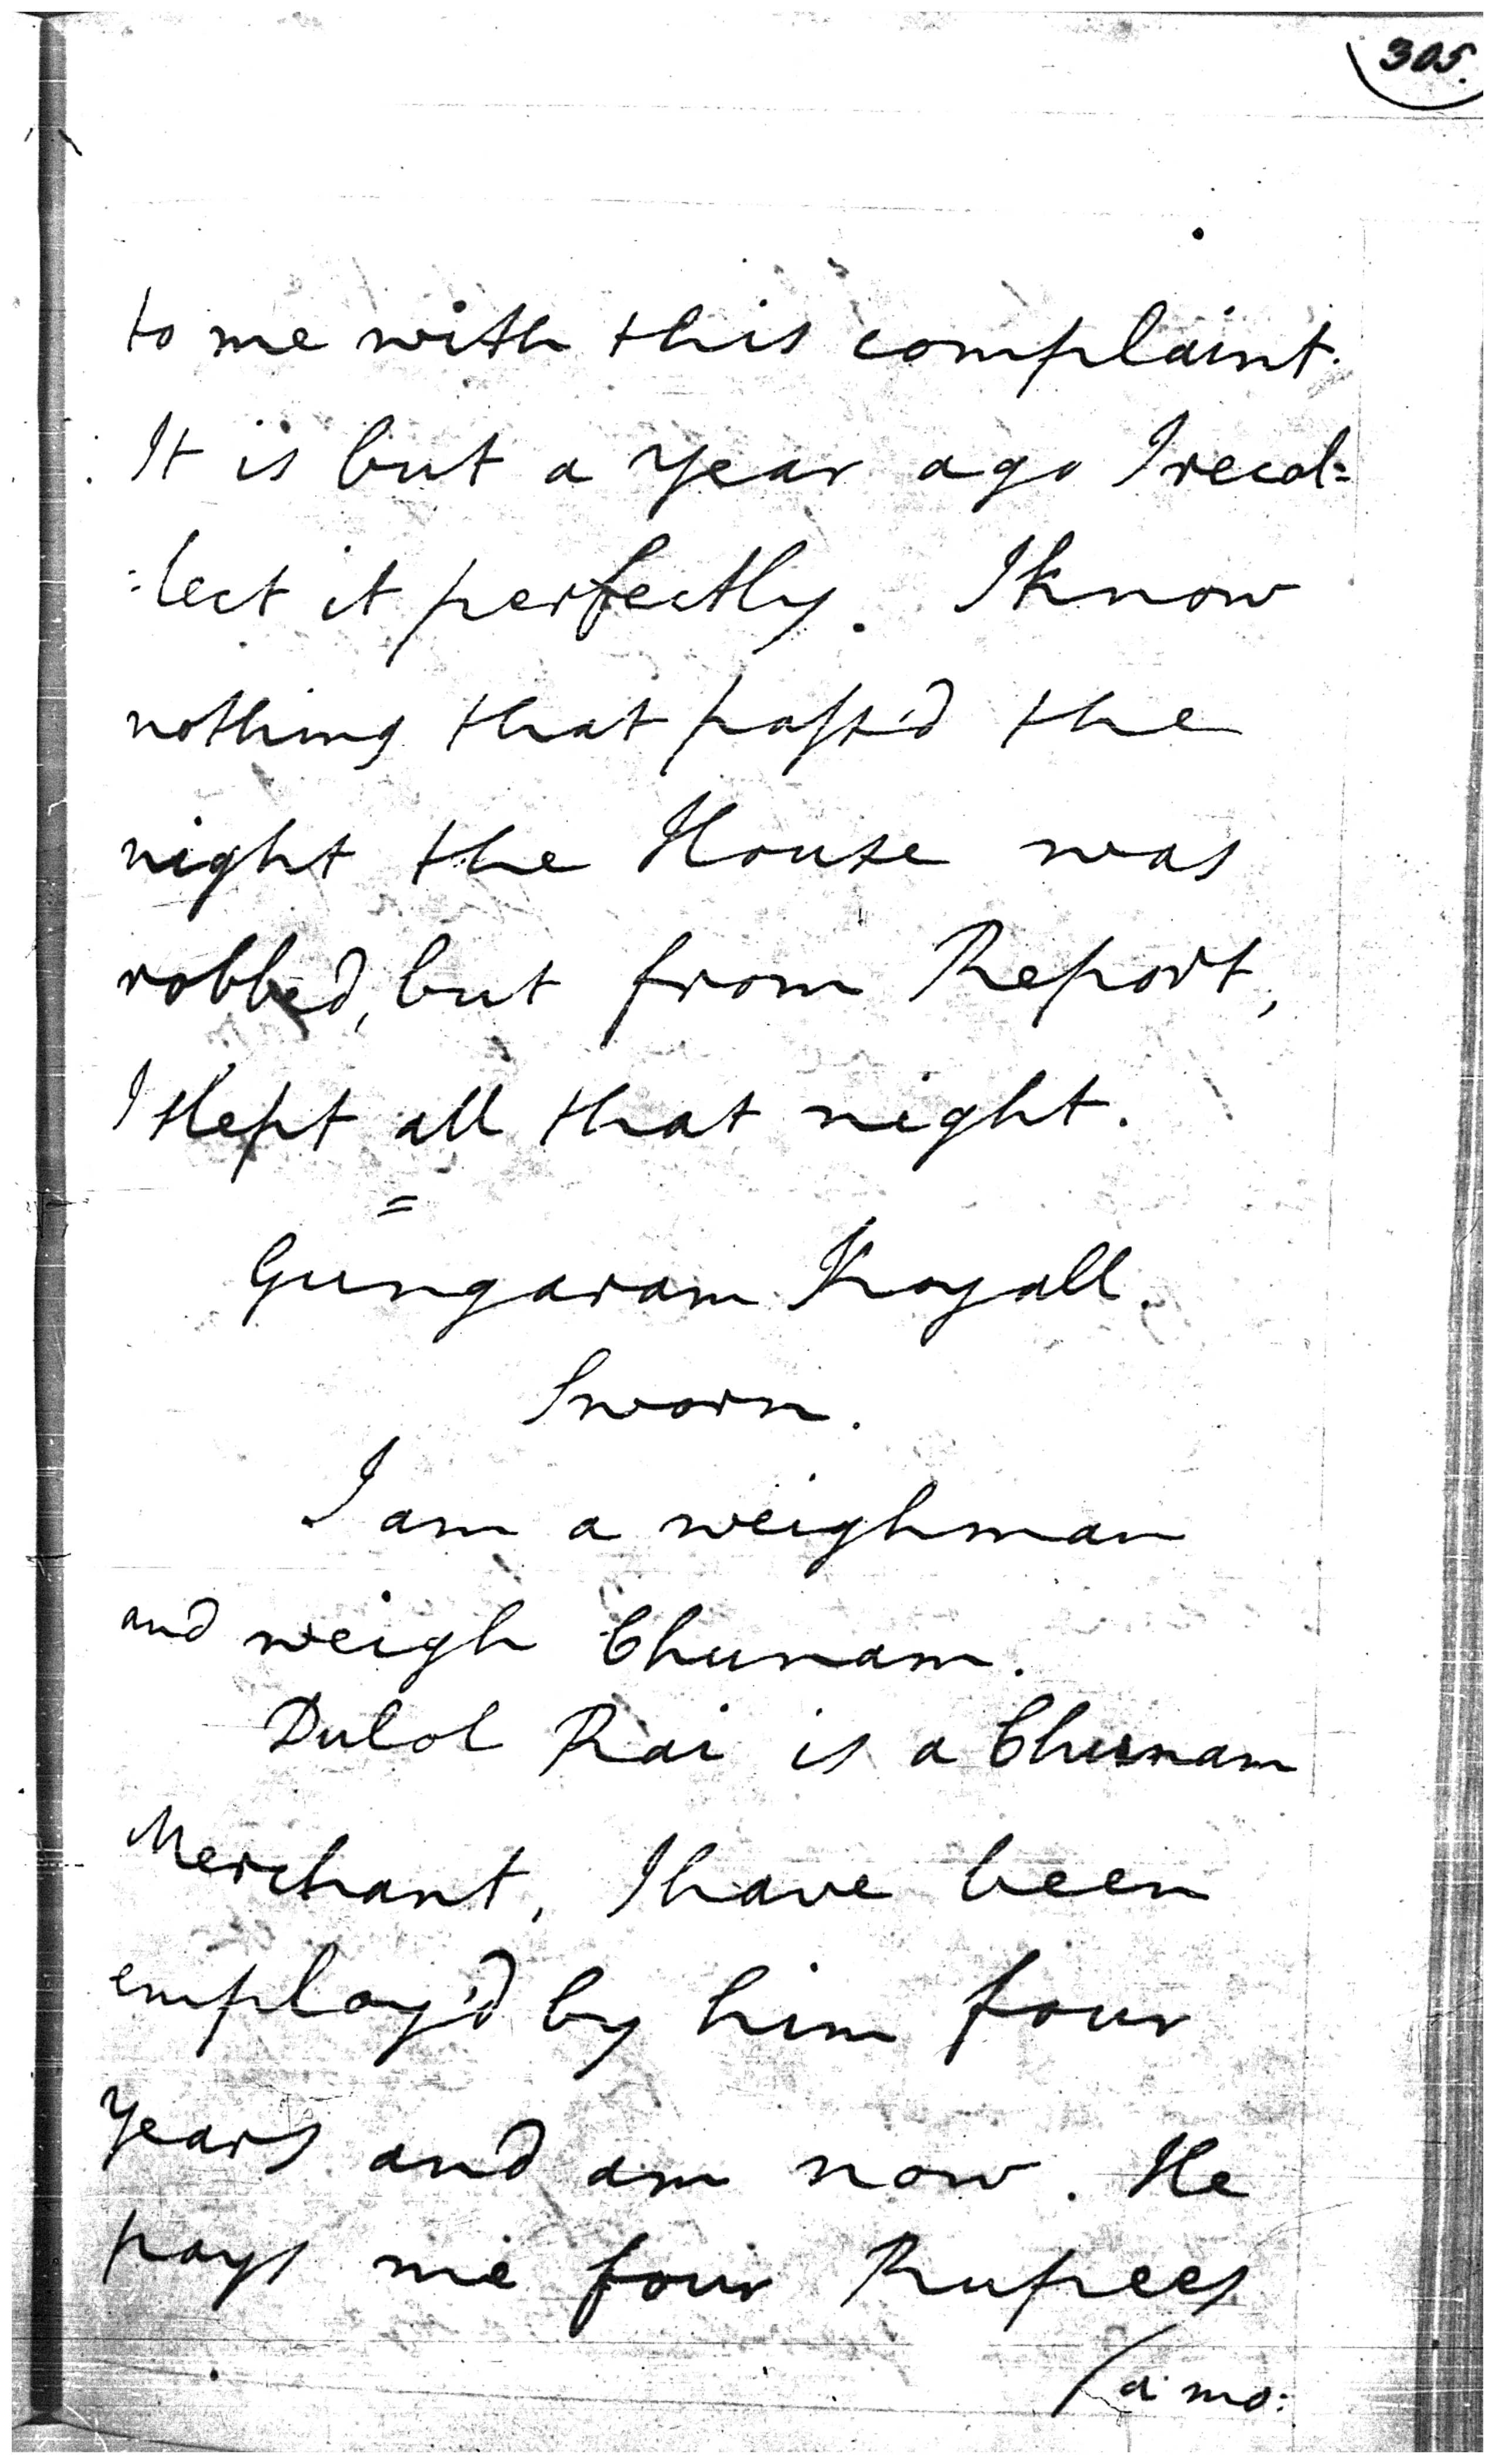 305.
to me with this complaint.
It is but a year ago I recol=
=lect it perfectly. I know
nothing that pass'd the
night the House was
robbed, but from Report,
I slept all that night.
=
Gungaram Koyall.
Sworn.
I am a weighman
and weigh Chunam.
Dulol Rai is a Chunam
Merchant, I have been
employ'd by him four
years and am now. He
pays me four Rupees
(a mo: